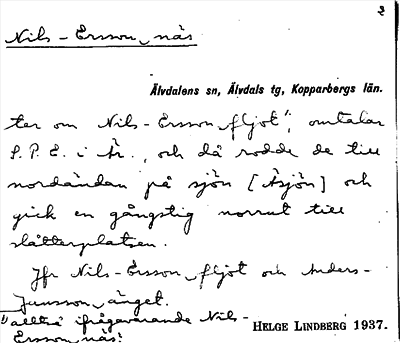 2
Nils-Ersson näs
Älvdalens sn, Älvdals tg, Kopparbergs län.
ter om Nils-Ersson fljot¹⁾, omtalar
S.P.E. i År., och då rodde de till
nordändan på sjön [Åsjön] och
gick en gångstig norrut till
slåtterplatsen.
Jfr Nils-Ersson fljot och Anders-
Junsson änget.
¹⁾ alltså ifrågavarande Nils-
Ersson näs.
HELGE LINDBERG 1937.